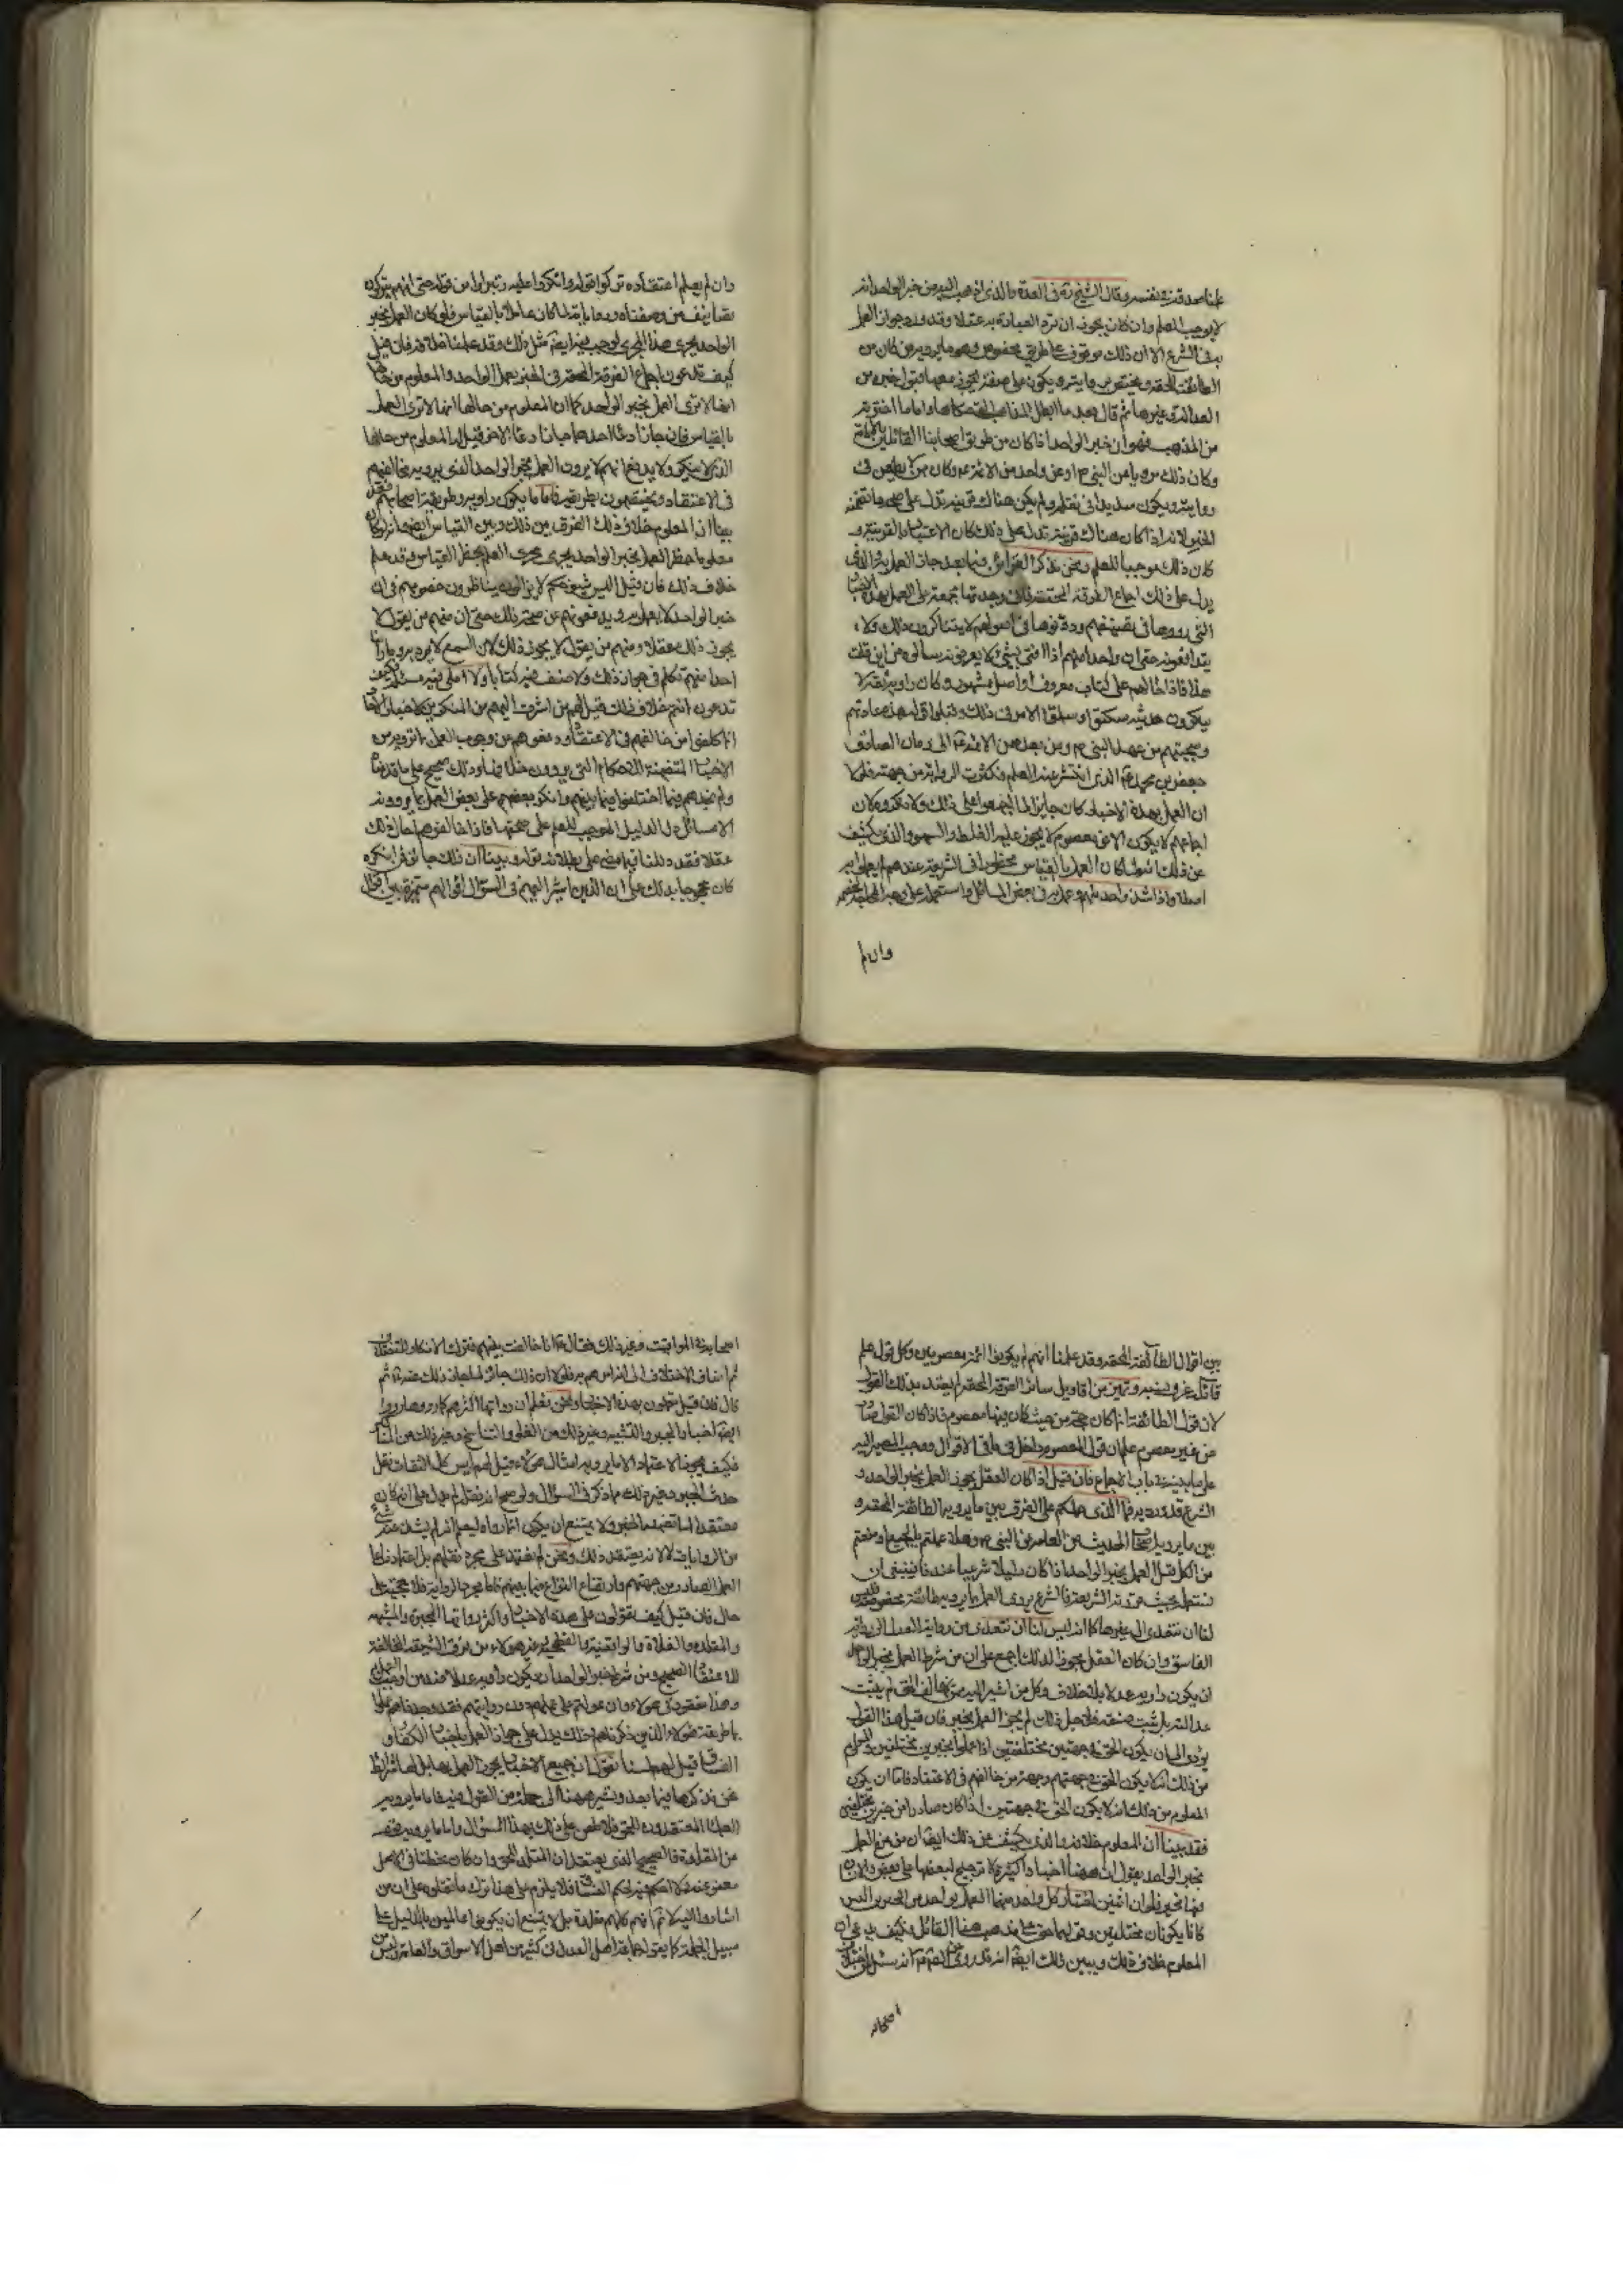 علمنا صدقه في نفسه وقال الشيخ ره في العدة والذي اذهب اليه من خبر الواحد انه
لا يوجب العلم وان كان يجوز ان ترد العبادة به عقلا وقد ورد جواز العمل
به في الشرع الا ان ذلك موقوف على طريق مخصوص وهو ما يرويه من كان من
الطائفة المحقة ويختص بروايته ويكون على صفة يجوز معها قبول خبره من
العدالة وغيرها ثم قال بعد ما ابطل المذاهب واما ما اخترته
من المذهب فهو ان خبر الواحد اذا كان من طريق اصحابنا القائلين بالامامة
وكان ذلك مرويا عن النبي ص او عن واحد من الائمة ع وكان ممن لا يطعن في
روايته ويكون سديدا في نقله ولم يكن هناك قرينة تدل على صحة ما تضمنه
الخبر لانه اذا كان هناك قرينة تدل على ذلك كان الاعتبار بالقرينة و
كان ذلك موجبا للعلم ونحن نذكر القرائن فيما بعد جاز العمل به والذي
يدل على ذلك اجماع الفرقة المحقة فاني وجدتها مجمعة على العمل بهذه الاخبار
التي رووها في تصنيفهم ودونوها في اصولهم لا يتناكرون ذلك ولا
يتدافعونه حتى ان واحدا منهم اذا افتى بشيء لا يعرفونه سالوه من اين قلت
هذا فاذا احالهم على كتاب معروف او اصل مشهور وكان راويه ثقة لا
ينكرون حديثه سكتوا وسلموا الامر في ذلك وقبلوا قوله هذه عادتهم
وسجيتهم من عهد النبي ص ومن بعده من الائمة ع الى زمان الصادق
جعفر بن محمد ع الذي انتشر عنه العلم وكثرت الرواية من جهته فلولا
ان العمل بهذه الاخبار كان جايزا لما اجمعوا على ذلك ولانكروه لان
اجماعهم لا يكون الا عن معصوم لا يجوز عليه الغلط والسهو والذي يكشف
عن ذلك انه لما كان العمل بالقياس محظورا في الشريعة عندهم لم يعملوا به
اصلا واذا شذ واحد منهم وعمل به في بعض المسائل واستعمله على وجه المحاجة لخصمه
وان لم
وان لم يعلم اعتقاده تركوا قوله وانكروا عليه وتبراوا من قوله حتى انهم يتركون
تصانيف من وصفناه ورواياته لما كان عاملا بالقياس فلو كان العمل بخبر
الواحد يجري هذا المجرى لوجب فيه ايضا مثل ذلك وقد علمنا خلافه فان قيل
كيف تدعون اجماع الفرقة المحقة في العمل بخبر الواحد والمعلوم من حالها
انها لا ترى العمل بخبر الواحد كما ان المعلوم من حالها انها لا ترى العمل
بالقياس فان جاز ادعاء احدهما جاز ادعاء الاخر قيل له المعلوم من حالها
الذي لا ينكر ولا يدفع انهم لا يرون العمل بخبر الواحد الذي يرويه مخالفهم
في الاعتقاد ويختصون بطريقه فاما ما يكون راويه وطريقه اصحابهم فقد
بينا ان المعلوم خلاف ذلك وبينا الفرق بين ذلك وبين القياس ايضا وانه لو كان
معلوما حظر العمل بخبر الواحد يجري مجرى العلم بحظر القياس وقد علم
خلاف ذلك فان قيل اليس شيوخكم لا يزالون يناظرون خصومهم في ان
خبر الواحد لا يعمل به ويدفعونهم عن صحة ذلك حتى ان منهم من يقول لا
يجوز ذلك عقلا ومنهم من يقول لا يجوز ذلك لان السمع لم يرد به وما راينا
احدا منهم تكلم في جواز ذلك ولا صنف فيه كتابا ولا املى فيه مسئلة فكيف
تدعون انتم خلاف ذلك قيل لهم من اشرت اليهم من المنكرين لاخبار الاحاد
انما كلموا من خالفهم في الاعتقاد ودفعوهم من وجوب العمل بما يروونه من
الاخبار المتضمنة للاحكام التي يروون خلافها وذلك صحيح على ما قدمناه
ولم نجدهم فيما اختلفوا فيما بينهم وانكر بعضهم على بعض العمل بما يروونه
الا مسائل دل الدليل الموجب للعلم على صحتها فاذا خالفوهم فيها ذلك
عقلا فقد دللنا فيما مضى على بطلان قوله وبينا ان ذلك جائز فمن انكره
كان محجوجا بذلك على ان الذين اشير اليهم في السؤال اقوالهم متميزة بين اقوال
بين اقوال الطائفة المحقة وقد علمنا انهم لم يكونوا ائمة معصومين وكل قول علم
قائله عرف نسبه وتميز من اقاويل سائر الفرقة المحقة لم يعتد بذلك القول
لان قول الطائفة انما كان حجة من حيث كان فيها معصوم فاذا كان القول صادرا
من غير معصوم علم ان قول المعصوم داخل في باقي الاقوال ووجب المصير اليه
على ما نبينه في باب الاجماع فان قيل اذا كان العقل يجوز العمل بخبر الواحد و
الشرع قد ورد به فما الذي حملكم على الفرق بين ما يرويه الطائفة المحقة و
بين ما يرويه اصحاب الحديث من العامة عن النبي ص وهلا عملتم بالجميع او منعتم
من الكل قيل العمل بخبر الواحد اذا كان دليلا شرعيا عندنا فينبغي ان
نستعمله بحيث قررته الشريعة فالشرع يرى العمل بما يرويه طائفة مخصوصة فليس
لنا ان نتعدى الى غيرها كما انه ليس لنا ان نتعدى من رواية العدل الى رواية
الفاسق وان كان العقل مجوزا لذلك اجمع على ان من شرط العمل بخبر الواحد
ان يكون راويه عدلا بلا خلاف وكل من اشير اليه ممن خالف الحق لم يثبت
عدالته بل ثبت فسقه فلاجل ذلك لم يجز العمل بخبره فان قيل هذا القول
يؤدي الى ان يكون الحق في جهتين مختلفتين اذا عملوا بخبرين مختلفين والمعلوم
من ذلك انه لا يكون الحق في جهتهم وجهة من خالفهم في الاعتقاد فاما ان يكون
المعلوم من ذلك انه لا يكون الحق في جهتين اذا كان صادرا من خبرين مختلفين
فقد بينا ان المعلوم خلافه والذي يكشف عن ذلك ايضا ان من منع العمل
بخبر الواحد يقول ان ههنا اخبارا كثيرة لا ترجيح لبعضها على بعض والانسان
فيها مخير فلو ان اثنين اختار كل واحد منهما العمل بواحد من الخبرين اليس
كانا يكونان مختلفين وقولهما حق على مذهب هذا القائل فكيف يدعى ان
المعلوم خلاف ذلك ويبين ذلك ايضا انه قد روي عن الصادق ع انه سئل عن اختلاف
اصحابه
اصحابه في المواقيت وغير ذلك فقال ع انا خالفت بينهم فترك الانكار لاختلافهم
ثم اضاف الاختلاف الى انه امرهم به فلولا ان ذلك جائز لما جاز ذلك عنه ع ثم
قال فان قيل تعملون بهذه الاخبار ونحن نعلم ان رواتها اكثرهم كما رووها رووا
ايضا اخبار الجبر والتشبيه وغير ذلك من الغلو والتناسخ وغير ذلك من المناكير
فكيف يجوز الاعتماد على ما يرويه امثال هؤلاء قيل لهم ليس كل الثقات نقل
حديث الجبر وغير ذلك مما ذكر في السؤال ولو صح انه نقله لم يدل على انه كان
معتقدا لما تضمنه الخبر ولا يمتنع ان يكون انما رواه ليعلم انه لم يشذ عنه شيء
من الروايات لا لانه يعتقد ذلك ونحن لم نعتمد على مجرد نقلهم بل اعتمادنا على
العمل الصادر من جهتهم وارتفاع النزاع فيما بينهم فاما مجرد الرواية فلا حجة على
حال فان قيل كيف تعولون على هذه الاخبار واكثر رواتها المجبرة والمشبهة
والمقلدة والغلاة والواقفية والفطحية وغير هؤلاء من فرق الشيعة المخالفة
للاعتقاد الصحيح ومن شرط خبر الواحد ان يكون راويه عدلا عند من اوجب العمل
وهذا مفقود في هؤلاء وان عولتم على عملهم دون روايتهم فقد وجدناهم عملوا
بما طريقه هؤلاء الذين ذكرناهم وذلك يدل على جواز العمل باخبار الكفار و
الفساق قيل لهم لسنا نقول ان جميع الاخبار يجوز العمل بها بل لها شرائط
نحن نذكرها فيما بعد ونشير ههنا الى جملة من القول فيه فاما ما يرويه
العلماء المعتقدون للحق فلا طعن على ذلك بهذا السؤال واما ما يرويه قوم
من المقلدة فالصحيح الذي يعتقد ان المقلد للحق وان كان مخطئا في الاصل
معفو عنه فلا احكم فيه بحكم الفساق فلا يلزم على هذا ترك ما نقلوه على ان من
اشاروا اليه لا نم انهم كلهم مقلدة بل لا يمتنع ان يكونوا عالمين بالدليل على
سبيل الجملة كما يقوله جماعة اهل العدل في كثير من اهل الاسواق والعامة وليس من